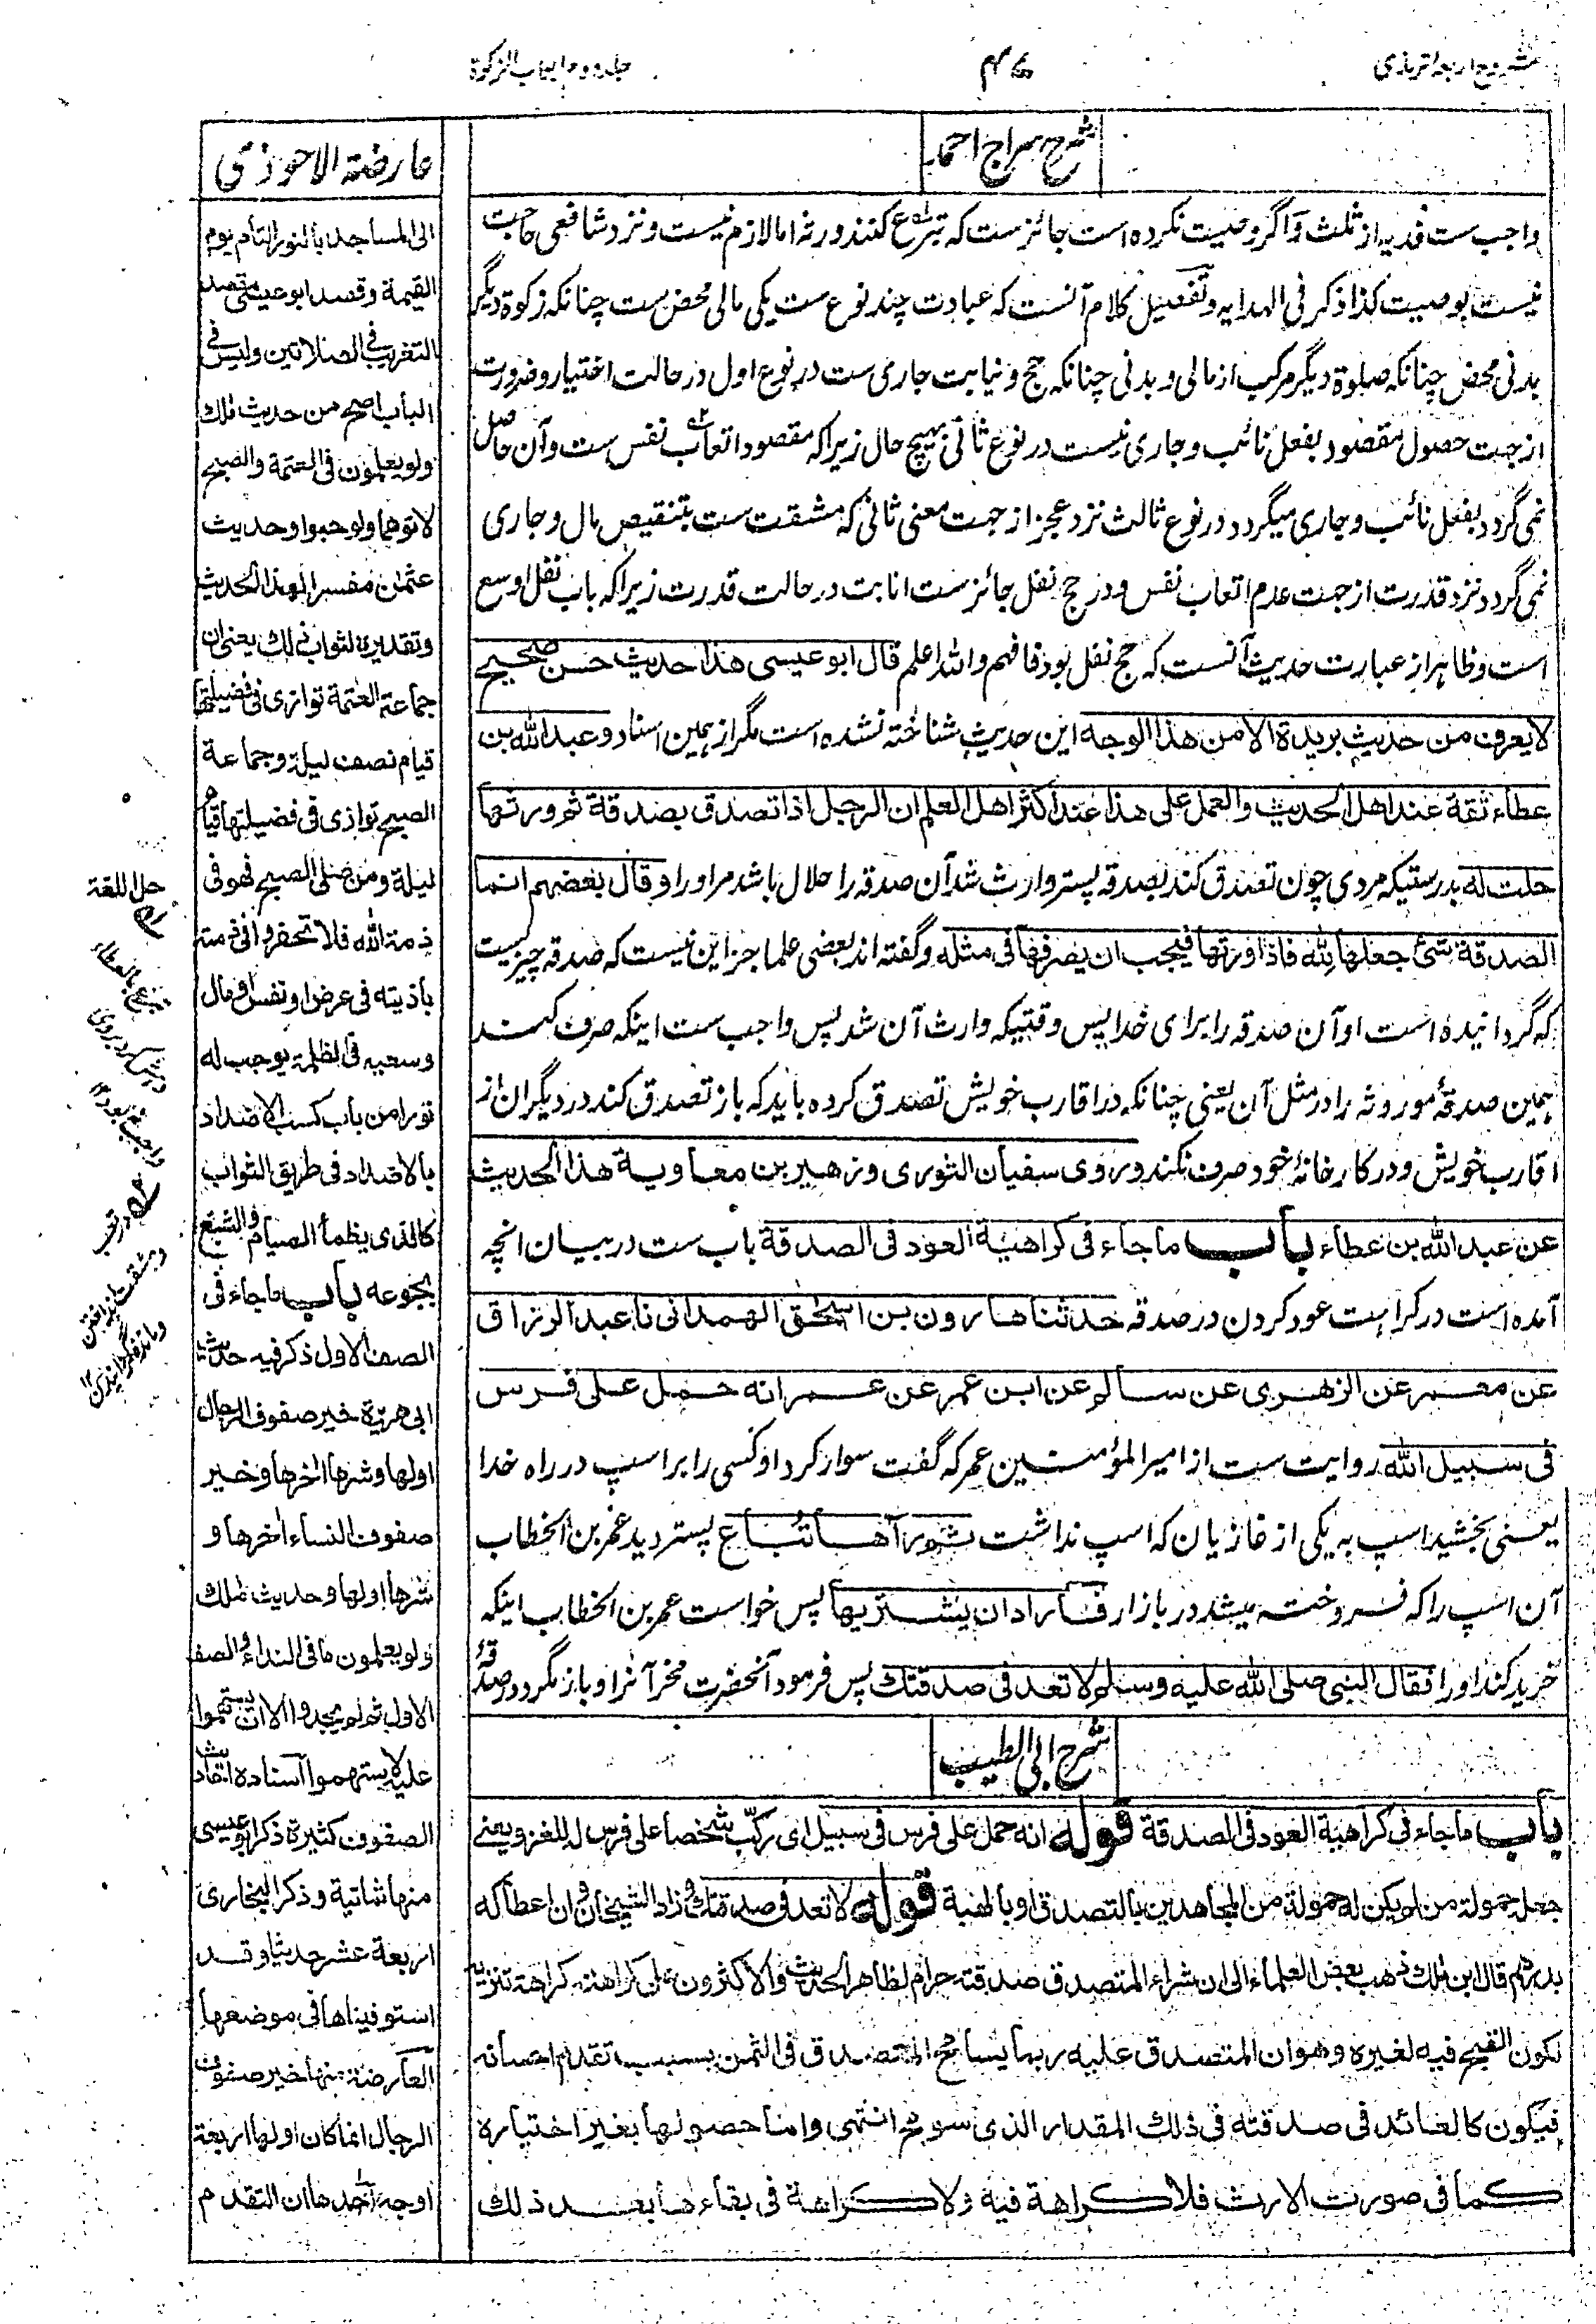 شروح اربعہ ترمذی
جلد دوم ابواب الزکوة
شرح سراج احمد
واجب ست فدیہ از ثلث و اگر وصیت نکرده است جائز ست کہ تبرع کنند ورثہ اما لازم نیست و نزد شافعی حاجت
نیست بوصیت کذا ذکر فی الهدایہ و تفصیل کلام آنست کہ عبادت چند نوع ست یکی مالی محض ست چنانکہ زکوة دیگر
بدنی محض چنانکہ صلوة دیگر مرکب از مالی و بدنی چنانکہ حج و نیابت جاری ست در نوع اول در حالت اختیار و ضرورت
از جهت حصول مقصود بفعل نائب و جاری نیست در نوع ثانی بهیچ حال زیرا کہ مقصود اتعاب نفس ست و آن حاصل
نمی گردد بفعل نائب و جاری میگردد در نوع ثالث نزد عجز از جهت معنی ثانی کہ مشقت ست بتنقیص مال و جاری
نمی گردد نزد قدرت از جهت عدم اتعاب نفس و در حج نفل جائز ست انابت در حالت قدرت زیرا کہ باب نفل اوسع
است و ظاهر از عبارت حدیث آنست کہ حج نفل بود فافهم والله اعلم قال ابو عیسی هذا حدیث حسن صحیح
لا یعرف من حدیث بریدة الا من هذا الوجه این حدیث شناختہ نشده است مگر از همین اسناد و عبد الله بن
عطاء ثقة عند اهل الحدیث والعمل علی هذا عند اکثر اهل العلم ان الرجل اذا تصدق بصدقة ثم ورثها
حلت له بدرستیکہ مردی چون تصدق کند بصدقہ پستر وارث شد آن صدقہ را حلال باشد مر او را و قال بعضهم انما
الصدقة شئ جعلها لله فاذا ورثها فیجب ان یصرفها فی مثله و گفتہ اند بعضی علما جز این نیست کہ صدقہ چیزیست
کہ گردانیده است او آن صدقہ را برای خدا پس وقتیکہ وارث آن شد پس واجب ست اینکہ صرف کند
همین صدقۂ موروثہ را در مثل آن یعنی چنانکہ در اقارب خویش تصدق کرده باید کہ باز تصدق کند در دیگران از
اقارب خویش و در کارخانۂ خود صرف نکند و روی سفیان الثوری و زهیر بن معاویة هذا الحدیث
عن عبد الله بن عطاء باب ما جاء فی کراهیة العود فی الصدقة باب ست در بیان انچہ
آمده است در کراهت عود کردن در صدقہ حدثنا هارون بن اسحق الهمدانی نا عبد الرزاق
عن معمر عن الزهری عن سالم عن ابن عمر عن عمر انه حمل علی فرس
فی سبیل الله روایت ست از امیر المؤمنین عمر کہ گفت سوار کرد او کسی را بر اسپ در راه خدا
یعنی بخشید اسپ بہ یکی از غازیان کہ اسپ نداشت ثم رآها تباع پستر دید عمر بن الخطاب
آن اسپ را کہ فروختہ میشد در بازار فاراد ان یشتریها پس خواست عمر بن الخطاب اینکہ
خرید کند او را فقال النبی صلی الله علیه وسلم لا تعد فی صدقتك پس فرمود آنحضرت مخر آنرا و باز مگرد در صدقۂ
شرح ابی الطیب
باب ما جاء فی کراهیة العود فی الصدقة قوله انه حمل علی فرس فی سبیل ای رکّب شخصا علی فرس له للغزو یعنی
جعل حمولة من لم یکن له حمولة من المجاهدین بالتصدق او بالهبة قوله لا تعد فی صدقتك زاد الشیخان وان اعطاکه
بدرهم قال ابن ملك ذهب بعض العلماء الی ان شراء المتصدق صدقته حرام لظاهر الحدیث والاکثرون علی کراهته کراهة تنزیه
لکون القبح فیه لغیره وهو ان المتصدق علیه ربما یسامح المتصدق فی الثمن بسبب تقدم احسانه
فیکون کالعائد فی صدقته فی ذلك المقدار الذی سومح انتهی واما حصولها بغیر اختیاره
کما فی صورت الارث فلا کراهة فیه ولا کراهة فی بقاءها بعد ذلك
عارضة الاحوذی
الی المساجد بالنور التام یوم
القیمة وقصد ابو عیسی مقصد
التغریب فی الصلاتین ولیس فی
الباب اصح من حدیث ملك
ولو یعلمون فی العتمة والصبح
لاتوهما ولو حبوا وحدیث
عثمان مفسر لهذا الحدیث
وتقدیره لثواب ذلك یعنی ان
جماعة العتمة توازی فی فضیلتها
قیام نصف لیلة وجماعة
الصبح توازی فی فضیلتها قیام
لیلة ومن صلی الصبح فهو فی
ذمة الله فلا تخفروا فی ذمته
باذیته فی عرض او نفس او مال
وسعیه فی الظلمة یوجب له
نورا من باب کسب الاضداد
بالاضداد فی طریق الثواب
کالذی یظمأ الصیام والشبع
بجوعه باب ما جاء فی
الصف الاول ذکر فیه حدیث
ابی هریرة خیر صفوف الرجال
اولها وشرها اخرها وخیر
صفوف النساء اخرها و
شرها اولها وحدیث ملك
ولو یعلمون ما فی النداء والصف
الاول ثم لم یجدوا الا ان یستهموا
علیه لاستهموا اسناده احادیث
الصفوف کثیرة ذکر ابو عیسی
منها ثمانیة وذکر البخاری
اربعة عشر حدیثا وقد
استوفیناها فی موضعها
العارضة منها خیر صفوف
الرجال انما کان اولها اربعة
اوجه احدها ان التقدم
حل اللغة